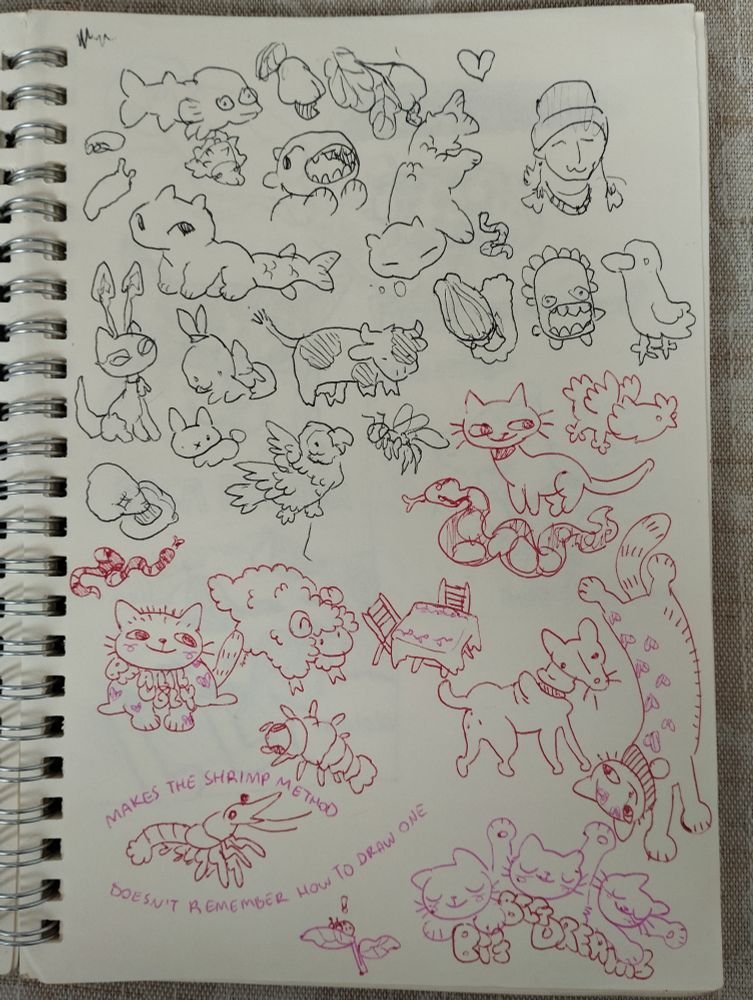 MAKES THE SHRIMP METHOD
DOESN'T REMEMBER HOW TO DRAW ONE
!
DREAMS